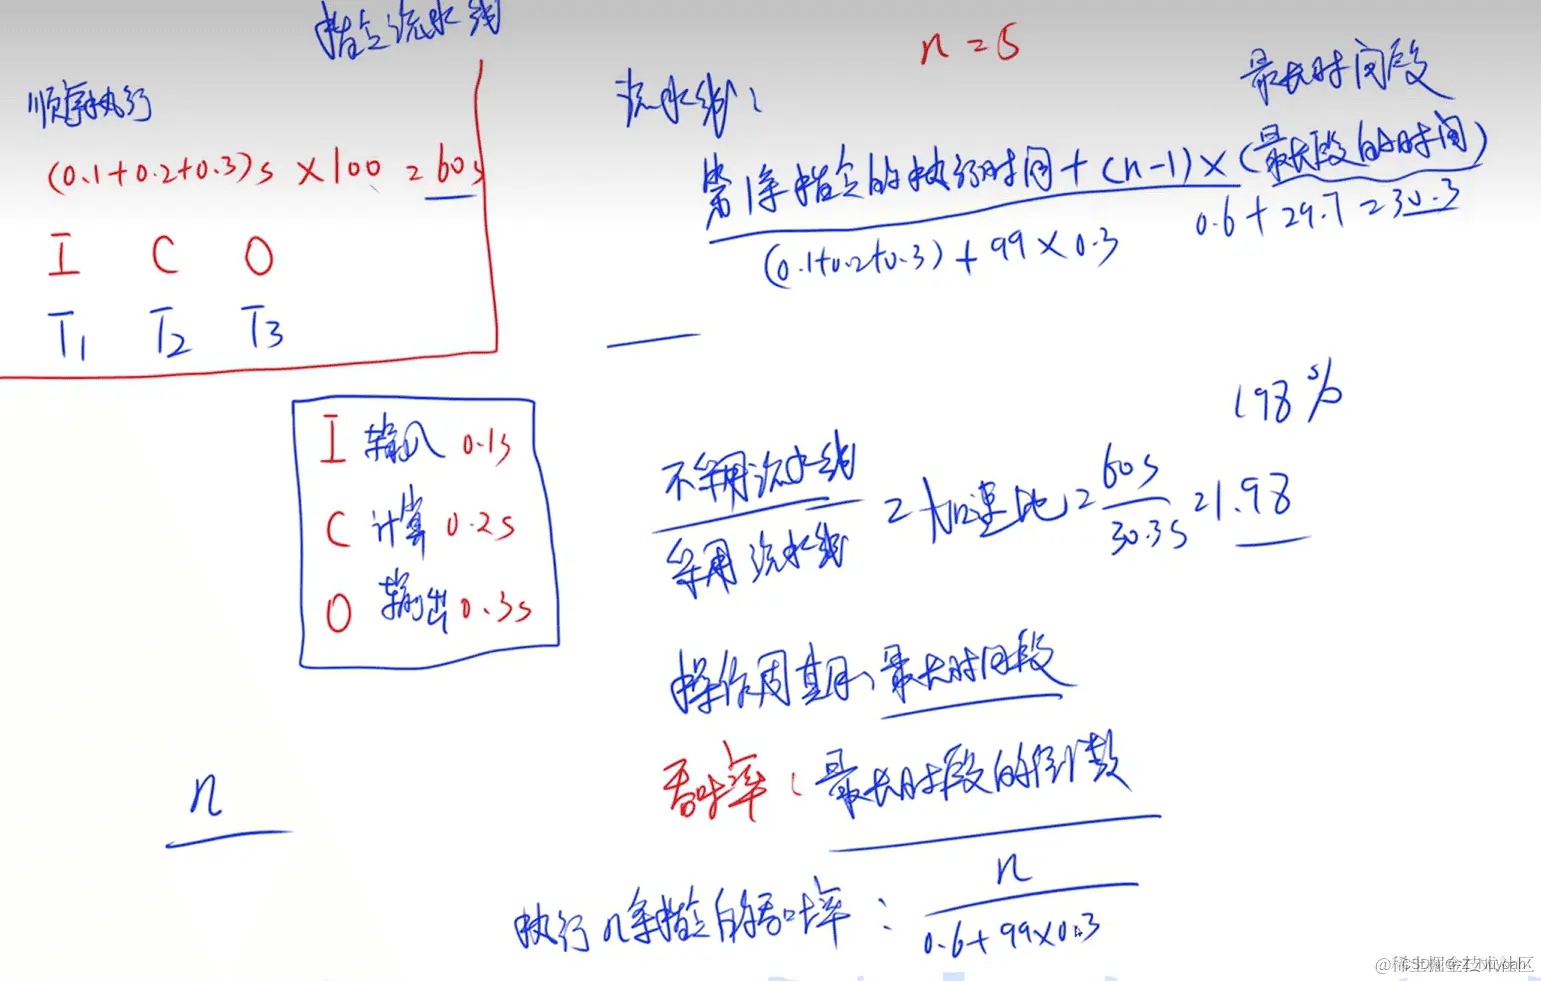 指令流水线
顺序执行
(0.1+0.2+0.3)s × 100 = 60s
I C O
T1 T2 T3
n = 5
流水线:
最长时间段
第1条指令的执行时间 + (n-1) × (最长段的时间)
(0.1+0.2+0.3) + 99 × 0.3
0.6 + 29.7 = 30.3
I 输入 0.1s
C 计算 0.2s
O 输出 0.3s
198%
不采用流水线
采用流水线
= 加速比 = 60s
30.3s
= 1.98
操作周期: 最长时间段
吞吐率: 最长时段的倒数
n
执行n条指令的吞吐率:
n
0.6 + 99×0.3
@稀土掘金技术社区